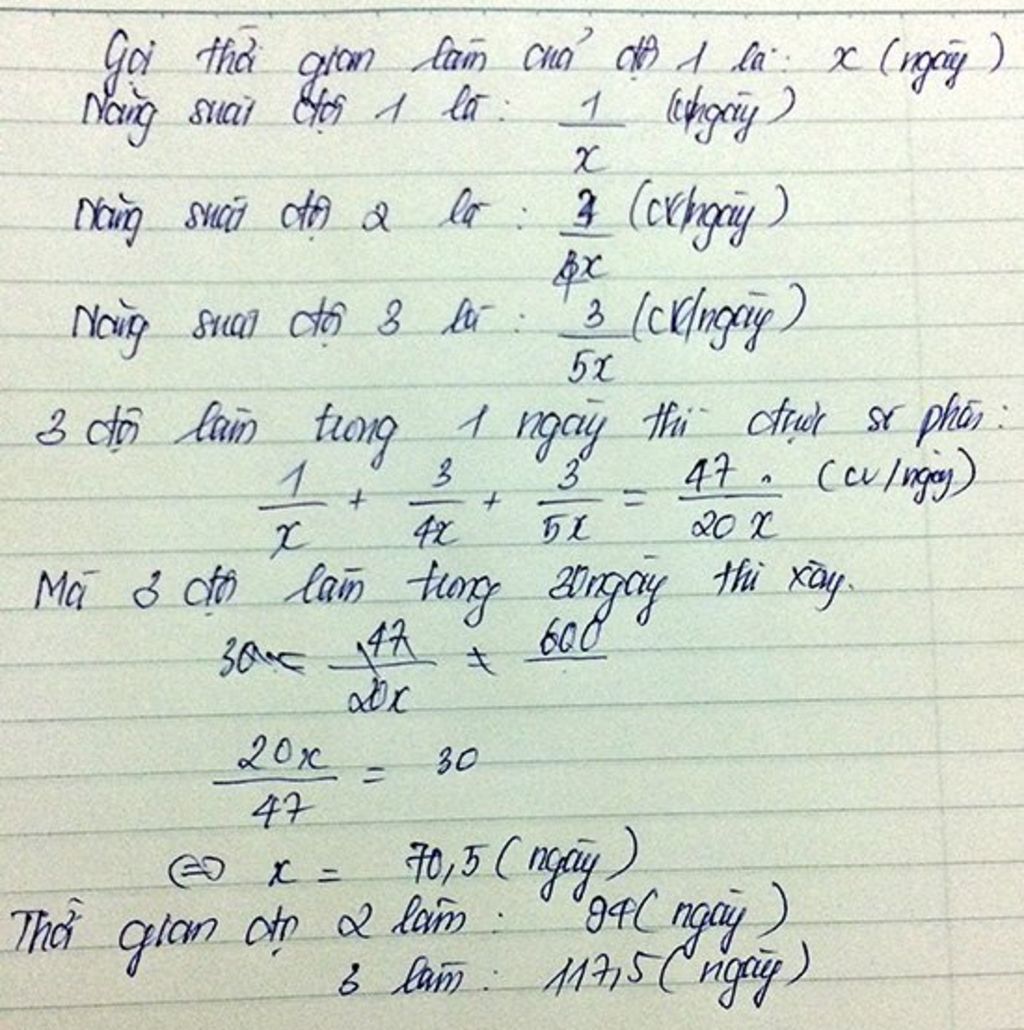 Gọi thời gian làm của đội 1 là: x (ngày)
Năng suất đội 1 là: 1/x (cv/ngày)
Năng suất đội 2 là: 3/4x (cv/ngày)
Năng suất đội 3 là: 3/5x (cv/ngày)
3 đội làm trong 1 ngày thì được số phần:
1/x + 3/4x + 3/5x = 47/20x (cv/ngày)
Mà 3 đội làm trong 30 ngày thì xây.
47/20x 600
20x/47 = 30
⇔ x = 70,5 (ngày)
Thời gian đội 2 làm: 94 (ngày)
3 làm: 117,5 (ngày)